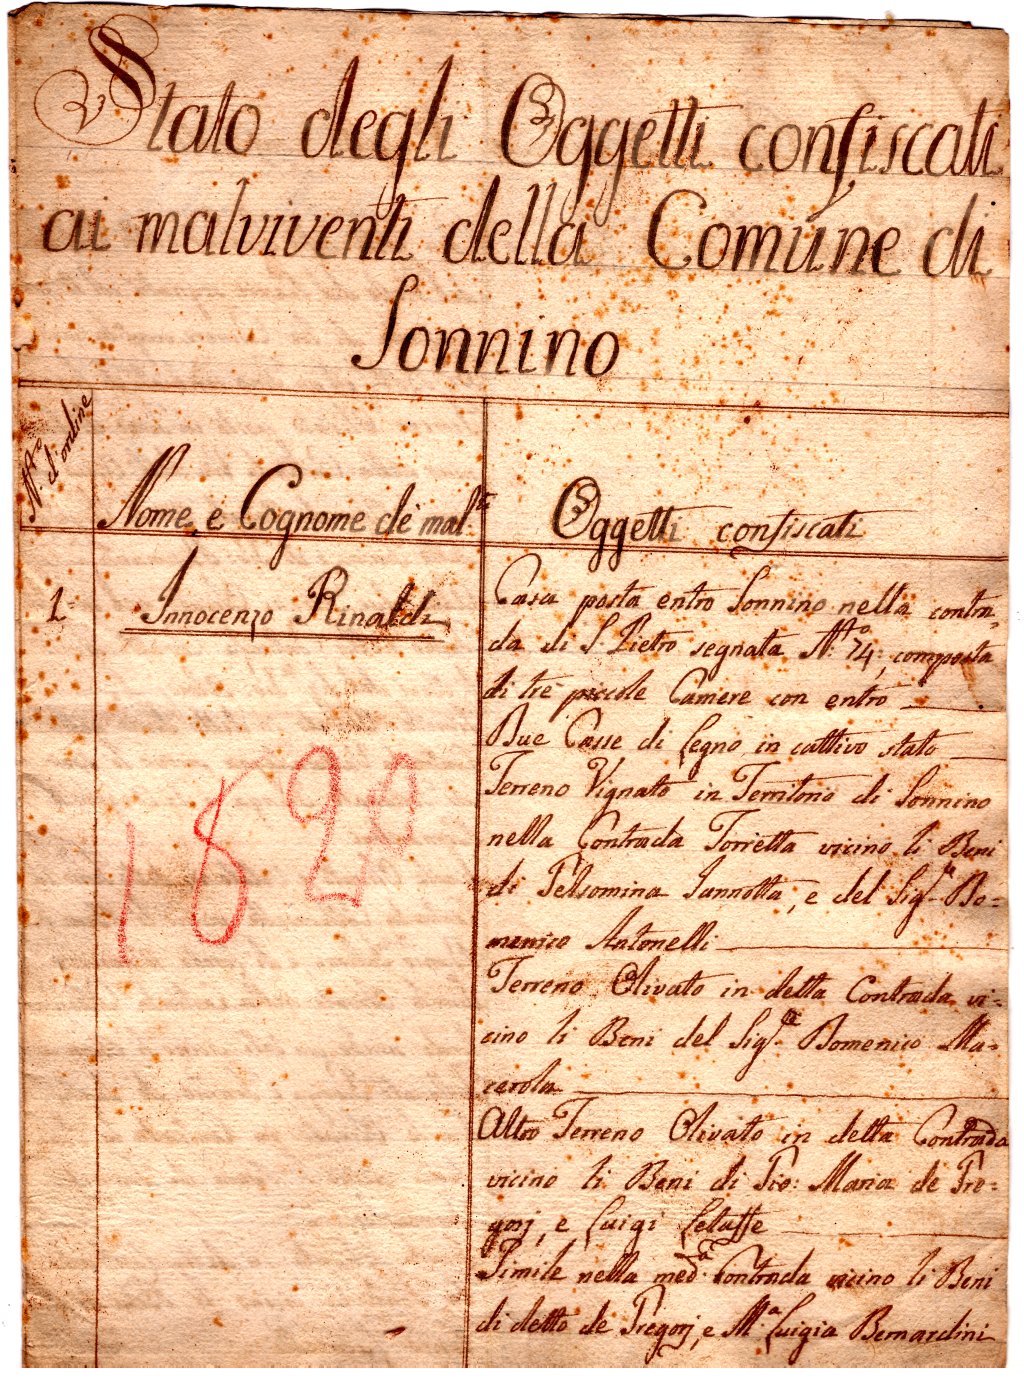 Stato degli Oggetti confiscati
ai malviventi della Comune di
Sonnino
N.ro d'ordine
Nome e Cognome de' mal.ti
Oggetti confiscati
1.
Innocenzo Rinaldi
Casa posta entro Sonnino nella contra-
da di S. Pietro segnata N.ro 74; composta
di tre piccole Camere con entro
Due Casse di Legno in cattivo stato
Terreno Vignato in Territorio di Sonnino
nella Contrada Torretta vicino li Beni
di Felsomina Iannotta, e del Sig.r Do=
menico Antonelli
Terreno Olivato in detta Contrada vi=
cino li Beni del Sig.r Domenico Ma=
cerola
Altro Terreno Olivato in detta Contrada
vicino li Beni di Gio: Maria de Gre=
gorj, e Luigi
Simile nella med.a Contrada vicino li Beni
di detto de Gregorj, e M.a Luigia Bernardini
1820